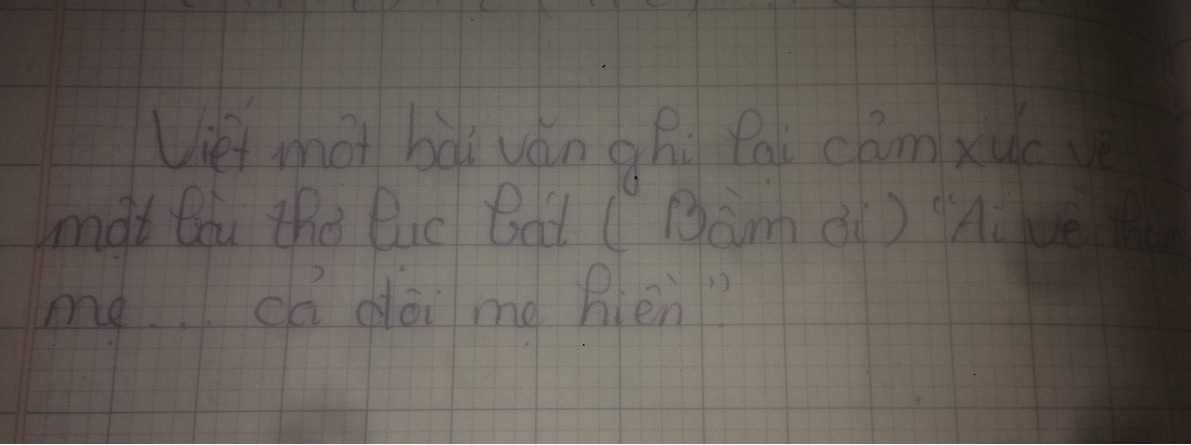 Viết một bài văn ghi lại cảm xúc về
một bài thơ lục bát ( Bầm ơi) "Ai về thăm
mẹ ... cả đời mẹ hiền"